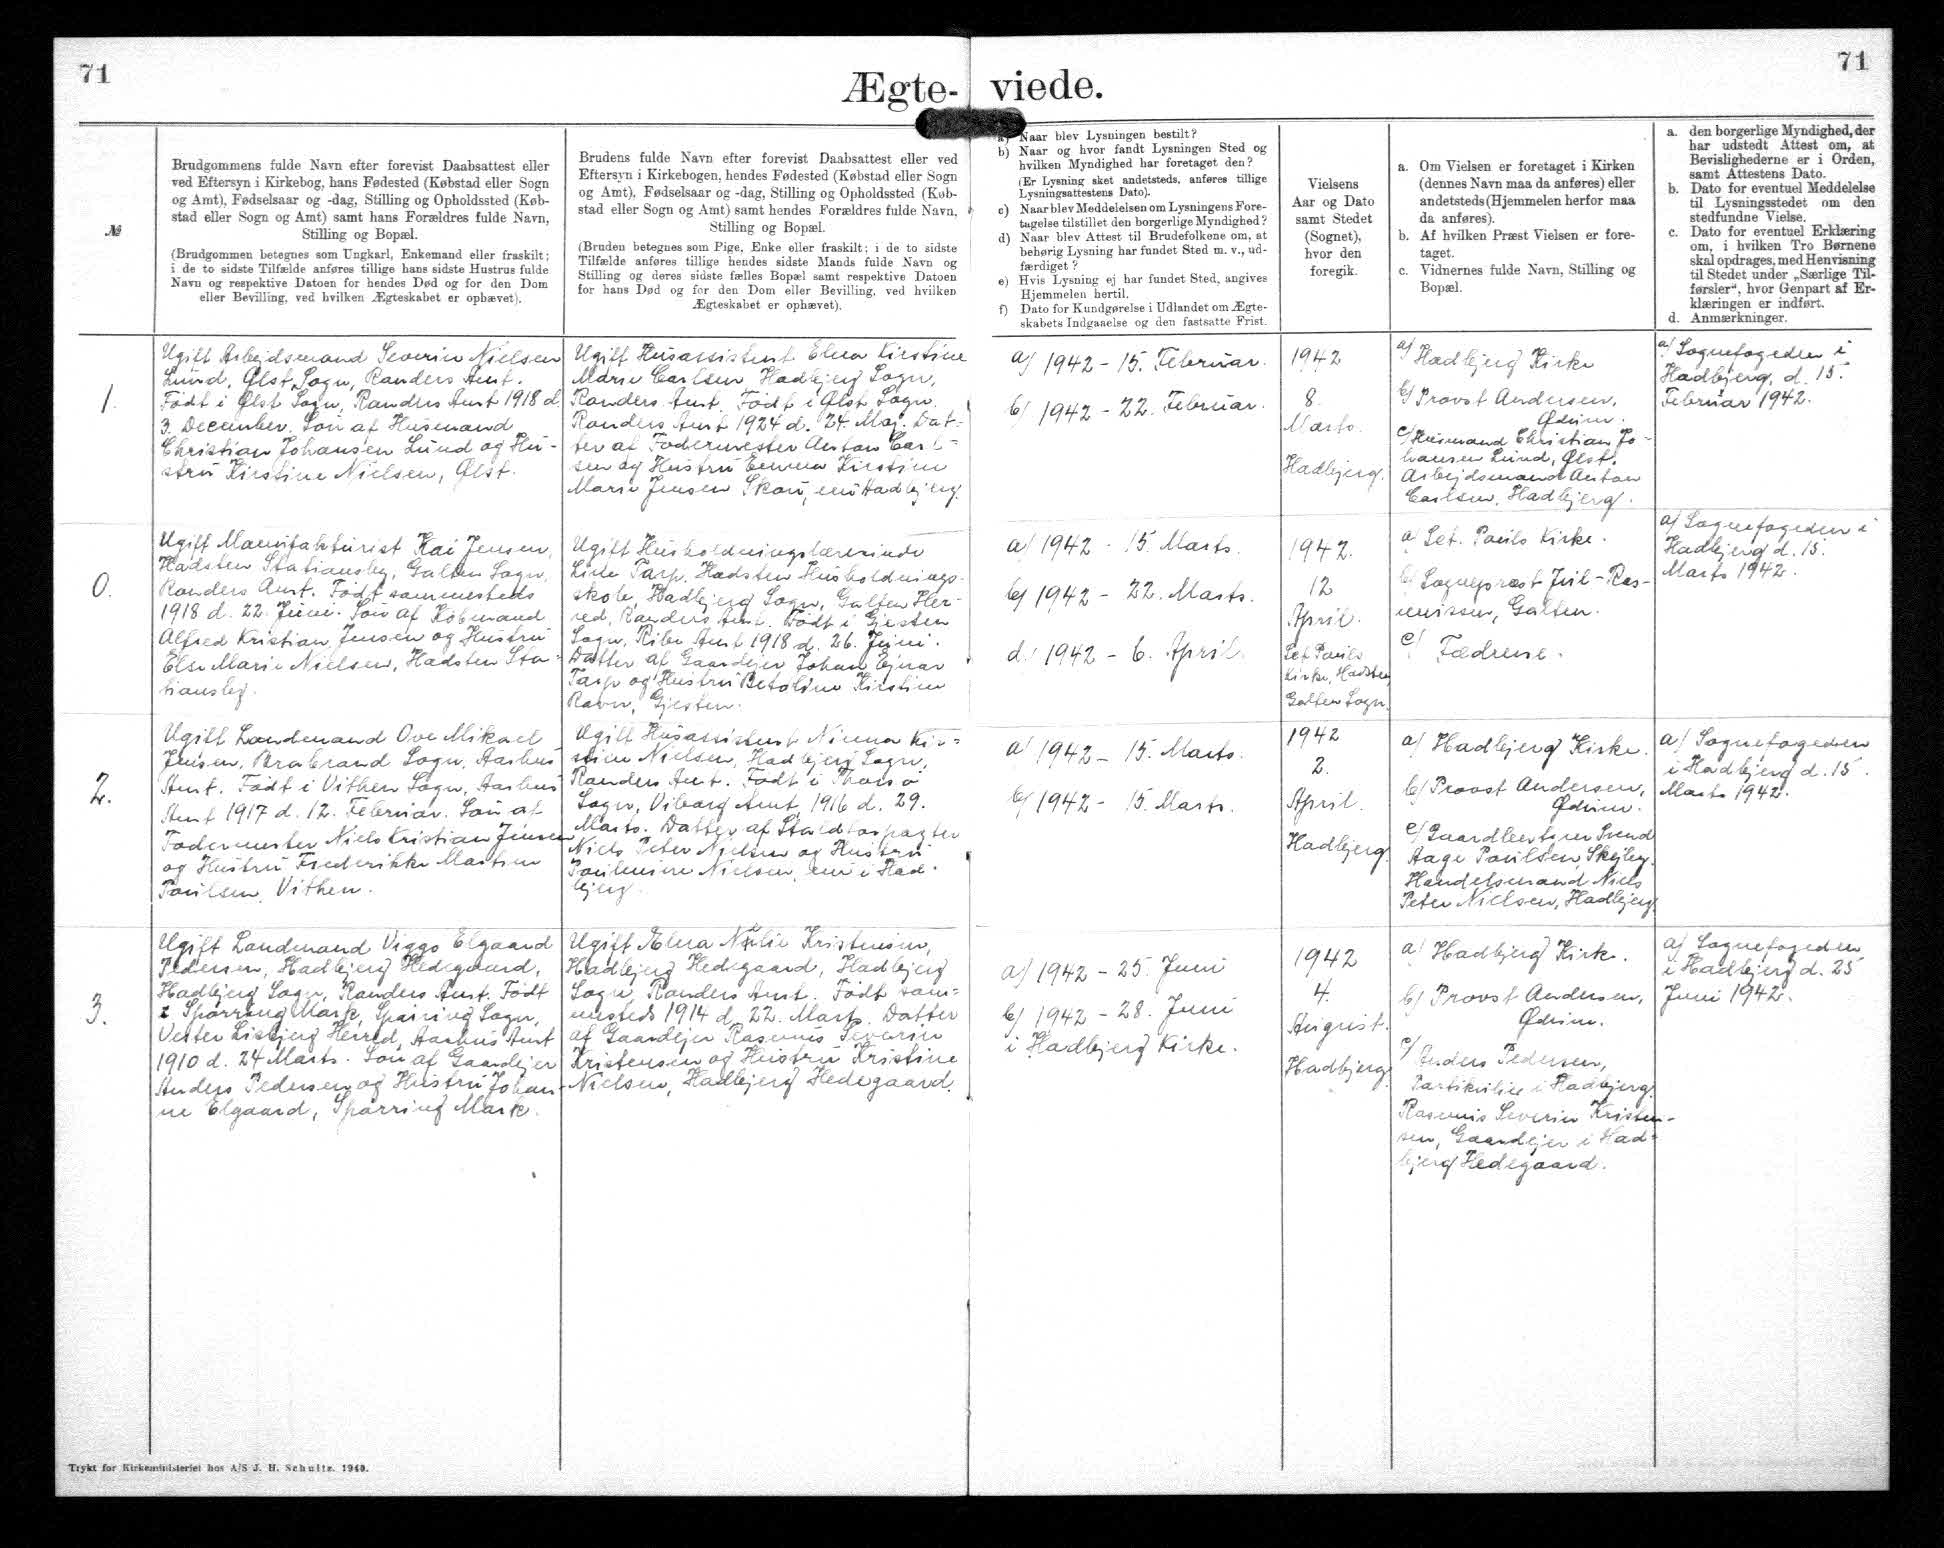 71
71
Ægte- viede.
№
Brudgommens fulde Navn efter forevist Daabsattest eller
ved Eftersyn i Kirkebog, hans Fødested (Købstad eller Sogn
og Amt), Fødselsaar og -dag, Stilling og Opholdssted (Køb-
stad eller Sogn og Amt) samt hans Forældres fulde Navn,
Stilling og Bopæl.
(Brudgommen betegnes som Ungkarl, Enkemand eller fraskilt;
i de to sidste Tilfælde anføres tillige hans sidste Hustrus fulde
Navn og respektive Datoen for hendes Død og for den Dom
eller Bevilling, ved hvilken Ægteskabet er ophævet).
Brudens fulde Navn efter forevist Daabsattest eller ved
Eftersyn i Kirkebogen, hendes Fødested (Købstad eller Sogn
og Amt), Fødselsaar og -dag, Stilling og Opholdssted (Køb-
stad eller Sogn og Amt) samt hendes Forældres fulde Navn,
Stilling og Bopæl.
(Bruden betegnes som Pige, Enke eller fraskilt; i de to sidste
Tilfælde anføres tillige hendes sidste Mands fulde Navn og
Stilling og deres sidste fælles Bopæl samt respektive Datoen
for hans Død og for den Dom eller Bevilling, ved hvilken
Ægteskabet er ophævet).
a) Naar blev Lysningen bestilt?
b) Naar og hvor fandt Lysningen Sted og
hvilken Myndighed har foretaget den?
(Er Lysning sket andetsteds, anføres tillige
Lysningsattestens Dato).
c) Naar blev Meddelelsen om Lysningens Fore-
tagelse tilstillet den borgerlige Myndighed?
d) Naar blev Attest til Brudefolkene om, at
behørig Lysning har fundet Sted m. v., ud-
færdiget?
e) Hvis Lysning ej har fundet Sted, angives
Hjemmelen hertil.
f) Dato for Kundgørelse i Udlandet om Ægte-
skabets Indgaaelse og den fastsatte Frist.
Vielsens
Aar og Dato
samt Stedet
(Sognet),
hvor den
foregik.
a. Om Vielsen er foretaget i Kirken
(dennes Navn maa da anføres) eller
andetsteds (Hjemmelen herfor maa
da anføres).
b. Af hvilken Præst Vielsen er fore-
taget.
c. Vidnernes fulde Navn, Stilling og
Bopæl.
a. den borgerlige Myndighed, der
har udstedt Attest om, at
Bevislighederne er i Orden,
samt Attestens Dato.
b. Dato for eventuel Meddelelse
til Lysningsstedet om den
stedfundne Vielse.
c. Dato for eventuel Erklæring
om, i hvilken Tro Børnene
skal opdrages, med Henvisning
til Stedet under „Særlige Til-
førsler“, hvor Genpart af Er-
klæringen er indført.
d. Anmærkninger.
1.
Ugift Arbejdsmand Severin Nielsen
Lund, Ølst Sogn, Randers Amt.
Født i Ølst Sogn, Randers Amt 1918 d.
3. December. Søn af Husmand
Christian Johansen Lund og Hu-
stru Kirstine Nielsen, Ølst.
Ugift Husassistent Elna Kirstine
Marie Carlsen, Hadbjerg Sogn,
Randers Amt. Født i Ølst Sogn,
Randers Amt 1924 d. 24. Maj. Dat-
ter af Fodermester Anton Carl-
sen og Hustru Emma Kirstine
Marie Jensen Skou, nu Hadbjerg.
a) 1942 - 15. Februar.
b) 1942 - 22. Februar.
1942
8.
Marts.
Hadbjerg.
a) Hadbjerg Kirke
b) Provst Andersen,
Ødum.
c) Husmand Christian Jo-
hansen Lund, Ølst.
Arbejdsmand Anton
Carlsen, Hadbjerg.
a) Sognefogeden i
Hadbjerg, d. 15.
Februar 1942.
0.
Ugift Manufakturist Kai Jensen,
Hadsten Stationsby, Galten Sogn,
Randers Amt. Født sammesteds
1918 d. 22. Juni. Søn af Købmand
Alfred Kristian Jensen og Hustru
Else Marie Nielsen, Hadsten Sta-
tionsby.
Ugift Husholdningslærerinde
Tarp, Hadsten Husholdnings-
skole, Hadbjerg Sogn, Galten Her-
red, Randers Amt. Født i Gjesten
Sogn, Ribe Amt 1918 d. 26. Juni.
Datter af Gaardejer Johan Ejnar
Tarp og Hustru Betoline Kirstine
Ravn, Gjesten.
a) 1942 - 15. Marts.
b) 1942 - 22. Marts.
d) 1942 - 6. April.
1942.
12
April.
Sct. Pouls
Kirke, Hadsten,
Galten Sogn.
a) Sct. Pouls Kirke.
b) Sognepræst Juil-Ras-
mussen, Galten.
c) Fædrene.
a) Sognefogeden i
Hadbjerg d. 15.
Marts 1942.
2.
Ugift Landmand Ove Mikael
Jensen, Brabrand Sogn, Aarhus
Amt. Født i Vitten Sogn, Aarhus
Amt 1917 d. 12. Februar. Søn af
Fodermester Niels Kristian Jensen
og Hustru Frederikke Martine
Poulsen, Vitten.
Ugift Husassistent Ninna Kir-
stine Nielsen, Hadbjerg Sogn,
Randers Amt. Født i Thorsø
Sogn, Viborg Amt, 1916 d. 29.
Marts. Datter af Staldforpagter
Niels Peter Nielsen og Hustru
Poulmine Nielsen, nu i Had-
bjerg.
a) 1942 - 15. Marts.
b) 1942 - 15. Marts.
1942
2.
April.
Hadbjerg
a) Hadbjerg Kirke.
b) Provst Andersen,
Ødum.
c) Gaardbestyrer Svend
Aage Poulsen, Skejby.
Handelsmand Niels
Peter Nielsen, Hadbjerg.
a) Sognefogeden
i Hadbjerg d. 15.
Marts 1942.
3.
Ugift Landmand Viggo Elgaard
Pedersen, Hadbjerg Hedegaard,
Hadbjerg Sogn, Randers Amt. Født
i Spørring Mark, Spørring Sogn,
Vester Lisbjerg Herred, Aarhus Amt
1910 d. 24 Marts. Søn af Gaardejer
Anders Pedersen og Hustru Johan-
ne Elgaard, Spørring Mark.
Ugift Elna Kristensen,
Hadbjerg Hedegaard, Hadbjerg
Sogn, Randers Amt. Født sam-
mesteds 1914 d. 22. Marts. Datter
af Gaardejer Rasmus Severin
Kristensen og Hustru Kristine
Nielsen, Hadbjerg Hedegaard.
a) 1942 - 25. Juni
b) 1942 - 28. Juni
i Hadbjerg Kirke.
1942
4.
August.
Hadbjerg
a) Hadbjerg Kirke.
b) Provst Andersen,
Ødum.
c) Anders Pedersen,
Partikulier i Hadbjerg.
Rasmus Severin Kristen-
sen, Gaardejer i Had-
bjerg Hedegaard.
a) Sognefogeden
i Hadbjerg d. 25
Juni 1942.
Trykt for Kirkeministeriet hos A/S J. H. Schultz. 1940.